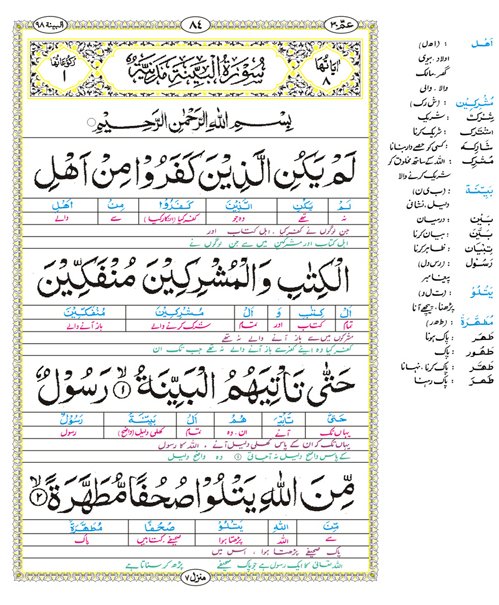 البينة ٩٨
٨٤
عمّ ٣٠
سُوْرَةُ الْبَيِّنَةِ مَدَنِيَّةٌ
اٰیَاتُهَا ٨
رُكُوْعُهَا ١
بِسْمِ اللّٰهِ الرَّحْمٰنِ الرَّحِيْمِ
لَمْ يَكُنِ الَّذِيْنَ كَفَرُوْا مِنْ اَهْلِ
لَمْ يَكُنِ الَّذِيْنَ كَفَرُوْا مِنْ اَهْلِ
نہ تھے وہ جو کفر کیا (انکار کیا) سے والے
جن لوگوں نے کفر کیا، اہل کتاب اور
اہل کتاب اور مشرکین میں سے جن لوگوں نے
الْكِتٰبِ وَالْمُشْرِكِيْنَ مُنْفَكِّيْنَ
الْ كِتٰبِ وَ الْ مُشْرِكِيْنَ مُنْفَكِّيْنَ
تمام کتاب اور تمام شرک کرنے والے باز آنے والے
مشرکوں میں سے باز آنے والے نہ تھے
کفر کیا وہ اپنے کفر سے باز آنے والے نہ تھے جب تک ان
حَتّٰى تَاْتِيَهُمُ الْبَيِّنَةُ ۙ﴿١﴾ رَسُوْلٌ
حَتّٰى تَاْتِيَ هُمُ الْ بَيِّنَةُ رَسُوْلٌ
یہاں تک آئے ان۔وہ تمام کھلی دلیل (واضح) رسول
یہاں تک کہ ان کے پاس کھلی دلیل آئے، اللہ کا رسول
کے پاس واضح دلیل نہ آ جاتی ۱ وہ واضح دلیل
مِّنَ اللّٰهِ يَتْلُوْا صُحُفًا مُّطَهَّرَةً ۙ﴿٢﴾
مِّنَ اللّٰهِ يَتْلُوْا صُحُفًا مُّطَهَّرَةً
سے اللہ پڑھتا ہوا صحیفے، کتابیں پاک
پاک صحیفے پڑھتا ہوا، اس میں
اللہ تعالیٰ کا ایک رسول ہے جو پاک صحیفے پڑھ کر سناتا ہے
منزل ٧
اَهْل : (ا ھ ل)
اولاد، بیوی
گھر، مالک
والا، والی
مُشْرِكِيْنَ : (ش ر ک)
شِرْكَت : شریک
اِشْتَرَكَ : شریک کرنا
مُشْرِك : اللہ کے ساتھ مخلوق کو
شریک کرنے والا
بَيِّنَة : (ب ی ن)
دلیل، نشانی
بَيْنَ : درمیان
بَيَّنَ : بیان کرنا
تِبْيَان : ظاہر کرنا
رَسُوْل : (ر س ل)
پیغامبر
يَتْلُوْا : (ت ل و)
پڑھنا، پیچھے آنا
مُطَهَّرَة : (ط ھ ر)
طَهَرَ : پاک ہونا
طَهُوْر : پاک
طَهَّرَ : پاک کرنا، نہانا
طَهُرَ : پاک رہنا